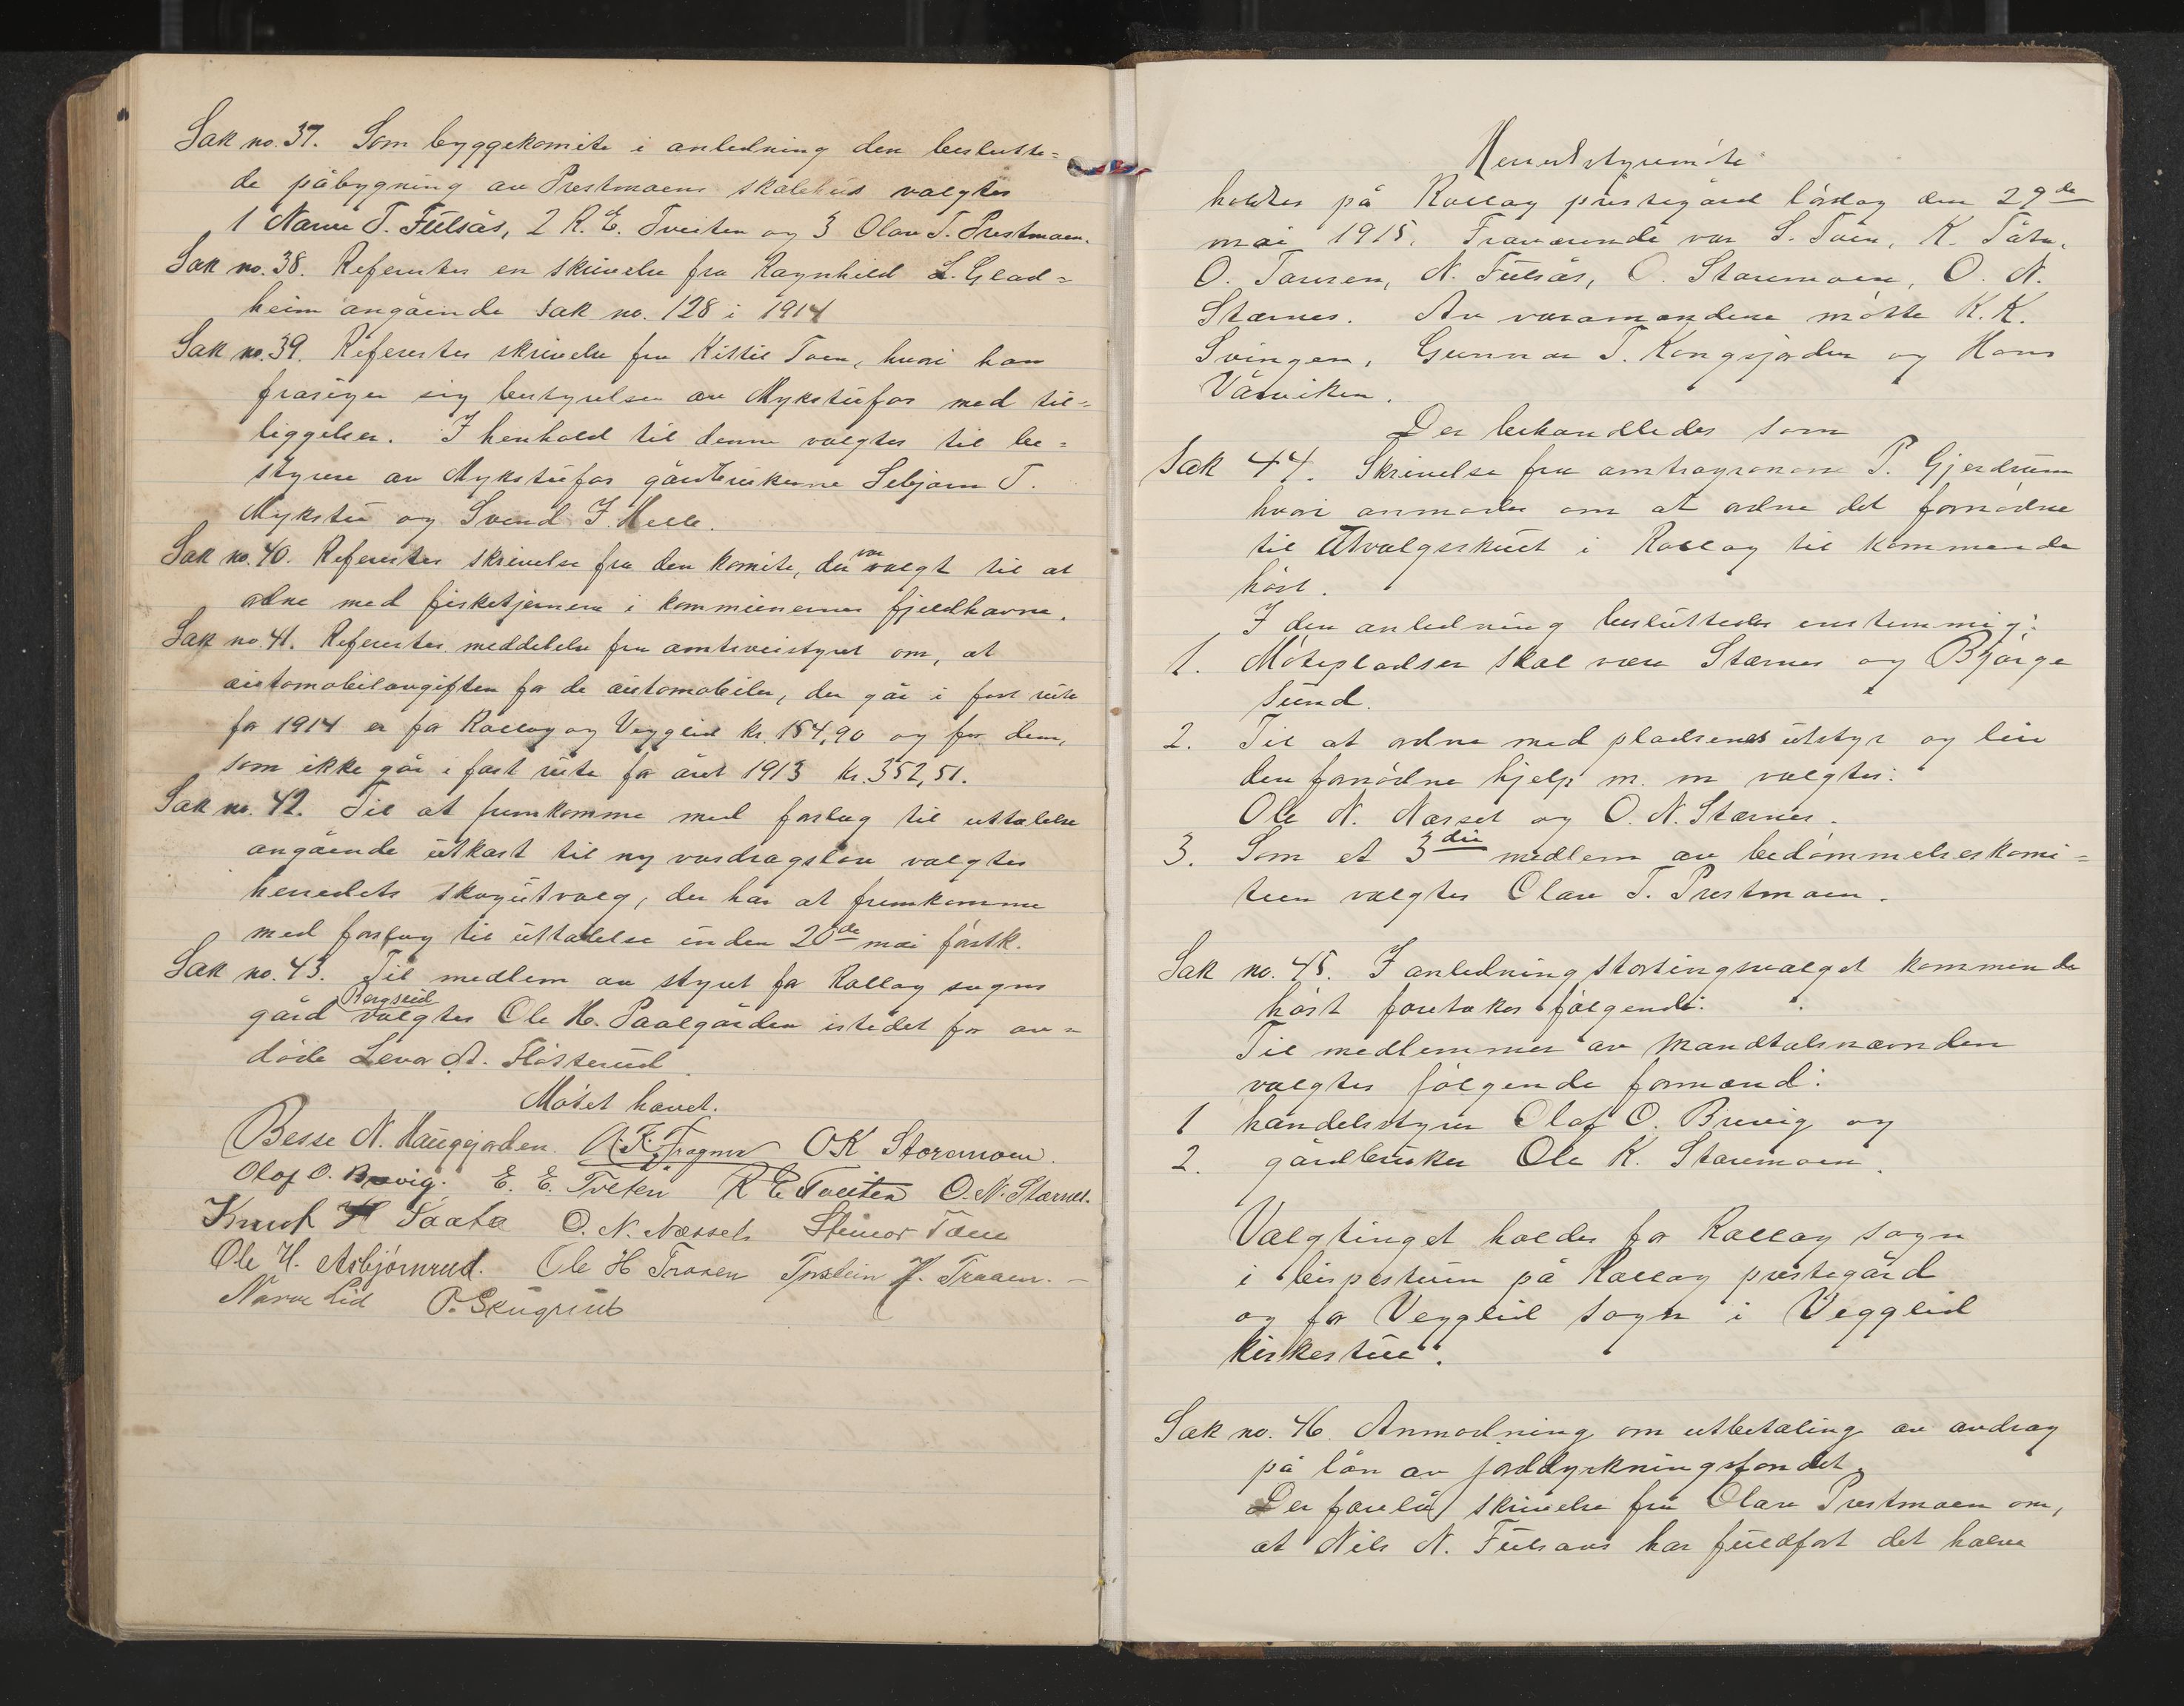 Sak no. 37. Som byggekomite i anledning den beslutte=
de påbygning av Prestmoens skolehus valgtes
1 Narve T. Fulsås, 2 R. E. Tveiten og 3 Olav T. Prestmoen.
Sak no. 38. Refertes en skrivelse fra Ragnhild L. Glad=
heim angående sak no. 128 i 1914
Sak no. 39. Refertes skrivelse fra Kittil Toen, hvori han
frasiger sig bestyrelsen av Mykstufos med til=
liggelser. I henhold til denne valgtes til be=
styrere av Mykstufos gårdbrukerne Sebjørn T.
Mykstu og Svend J. Helle.
Sak no. 40. Refertes skrivelse fra den komite, der var valgt til at
ordne med fisketjernene i kommunernes fjeldhavne.
Sak no. 41. Refertes meddelelse fra amtsveistyret om, at
automobilavgiften for de automobiler, der går i fast rute
for 1914 er for Rollag og Veggli kr. 154,90 og for dem,
som ikke går i fast rute for året 1913 kr. 352,51.
Sak no. 42. Til at fremkomme med forslag til uttalelse
angående utkast til ny vasdragslov valgtes
herredets skogutvalg, der har at fremkomme
med forslag til uttalelse inden 20de mai førstk.
Sak no. 43. Til medlem av styret for Rollag sogns
gård Bergseid valgtes Ole H. Paalgården istedet for av=
døde Levor A. Fløsterud.
Møtet hævet.
Besse N. Haugjorden. A. K. Fragner OK Storemoen.
Olaf O. Bruvig. E. E. Tveten R E Tveiten O. N. Stærnes.
Knut H Taata O. N. Nærset Steinar Toen
Ole H. Asbjørnrud. Ole H Traaen Torstein H. Traaen.
Narve Lid P. Skugrud
Herredstyremøte
holdtes på Rollag prestegård lørdag den 29de
mai 1915. Fraværende var S. Toen, K. Tåta,
O. Traaen, N. Fulsås, O. Storemoen, O. N.
Stærnes. Av varamændene møtte K. K.
Svingen, Gunnar T. Kongsjorden og Hans
Våsviken.
Der behandledes som
Sak 44. Skrivelse fra amtsagronom P. Gjerdrum
hvori anmodes om at ordne det fornødne
til Utvalgsskuet i Rollag til kommende
høst.
I den anledning besluttedes enstemmig:
1. Møtepladser skal være Stærnes og Bjørge
sund.
2. Til at ordne med pladsenes utstyr og leie
den fornødne hjelp m. m valgtes:
Ole N. Nærset og O. N. Stærnes.
3. Som et 3die medlem av bedømmelseskomi=
teen valgtes Olav T. Prestmoen.
Sak no. 45. I anledning stortingsvalget kommende
høst foretokes følgende:
Til medlemmer av mandtalsnævnden
valgtes følgende formænd:
1 handelsstyrer Olaf O. Bruvig og
2. gårdbruker Ole K. Storemoen.
Valgtinget holdes for Rollag sogn
i bispestuen på Rollag prestegård
og for Veggli sogn i Veggli
kirkestue.
Sak no. 46. Anmodning om utbetaling av avdrag
på lån av jorddyrkningsfondet.
Der forelå skrivelse fra Olav Prestmoen om,
at Nils N. Fulsaas har fuldført det halve